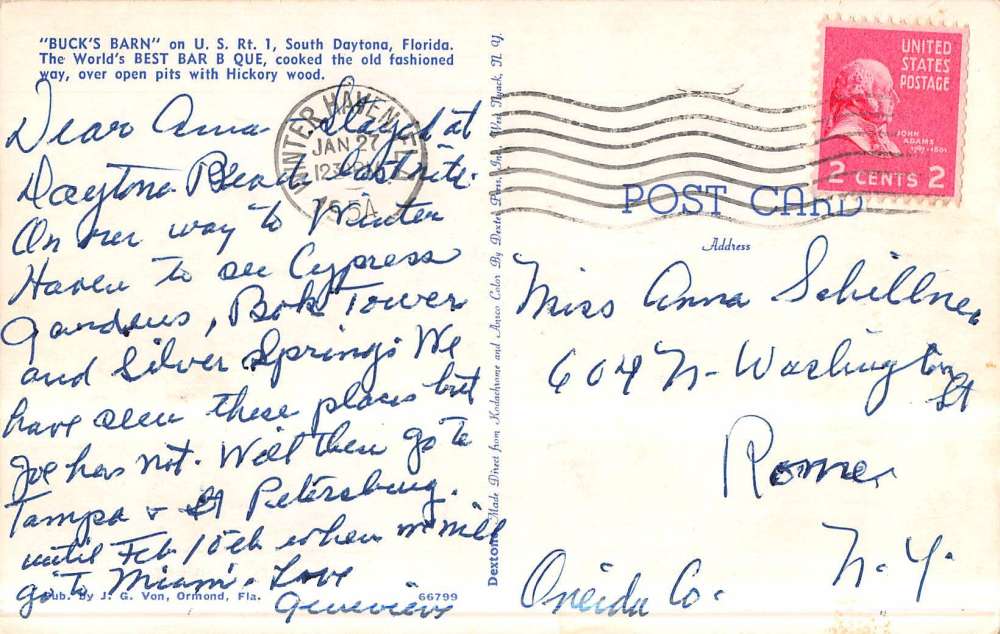 "BUCK'S BARN" on U. S. Rt. 1, South Daytona, Florida.
The World's BEST BAR B QUE, cooked the old fashioned
way, over open pits with Hickory wood.
Dear Anna- Stayed at
Daytona Beach last nite.
On our way to Winter
Haven to see Cypress
Gardens, Bok Tower
and Silver Springs. We
have seen these places but
Joe has not. Will then go to
Tampa + St Petersburg.
until Feb 15th when we will
go to Miami. Love
Genevieve
Pub. by J. G. Von, Ormond, Fla.
66799
WINTER HAVEN, FLA.
JAN 27
1954
Dextone Made Direct from Kodachrome and Ansco Color By Dexter Press, Inc., West Nyack, N. Y.
UNITED
STATES
POSTAGE
JOHN
ADAMS
1797-1801
2 CENTS 2
POST CARD
Address
Miss Anna Schillner
604 N- Washington
St
Rome,
N. Y.
Oneida Co.